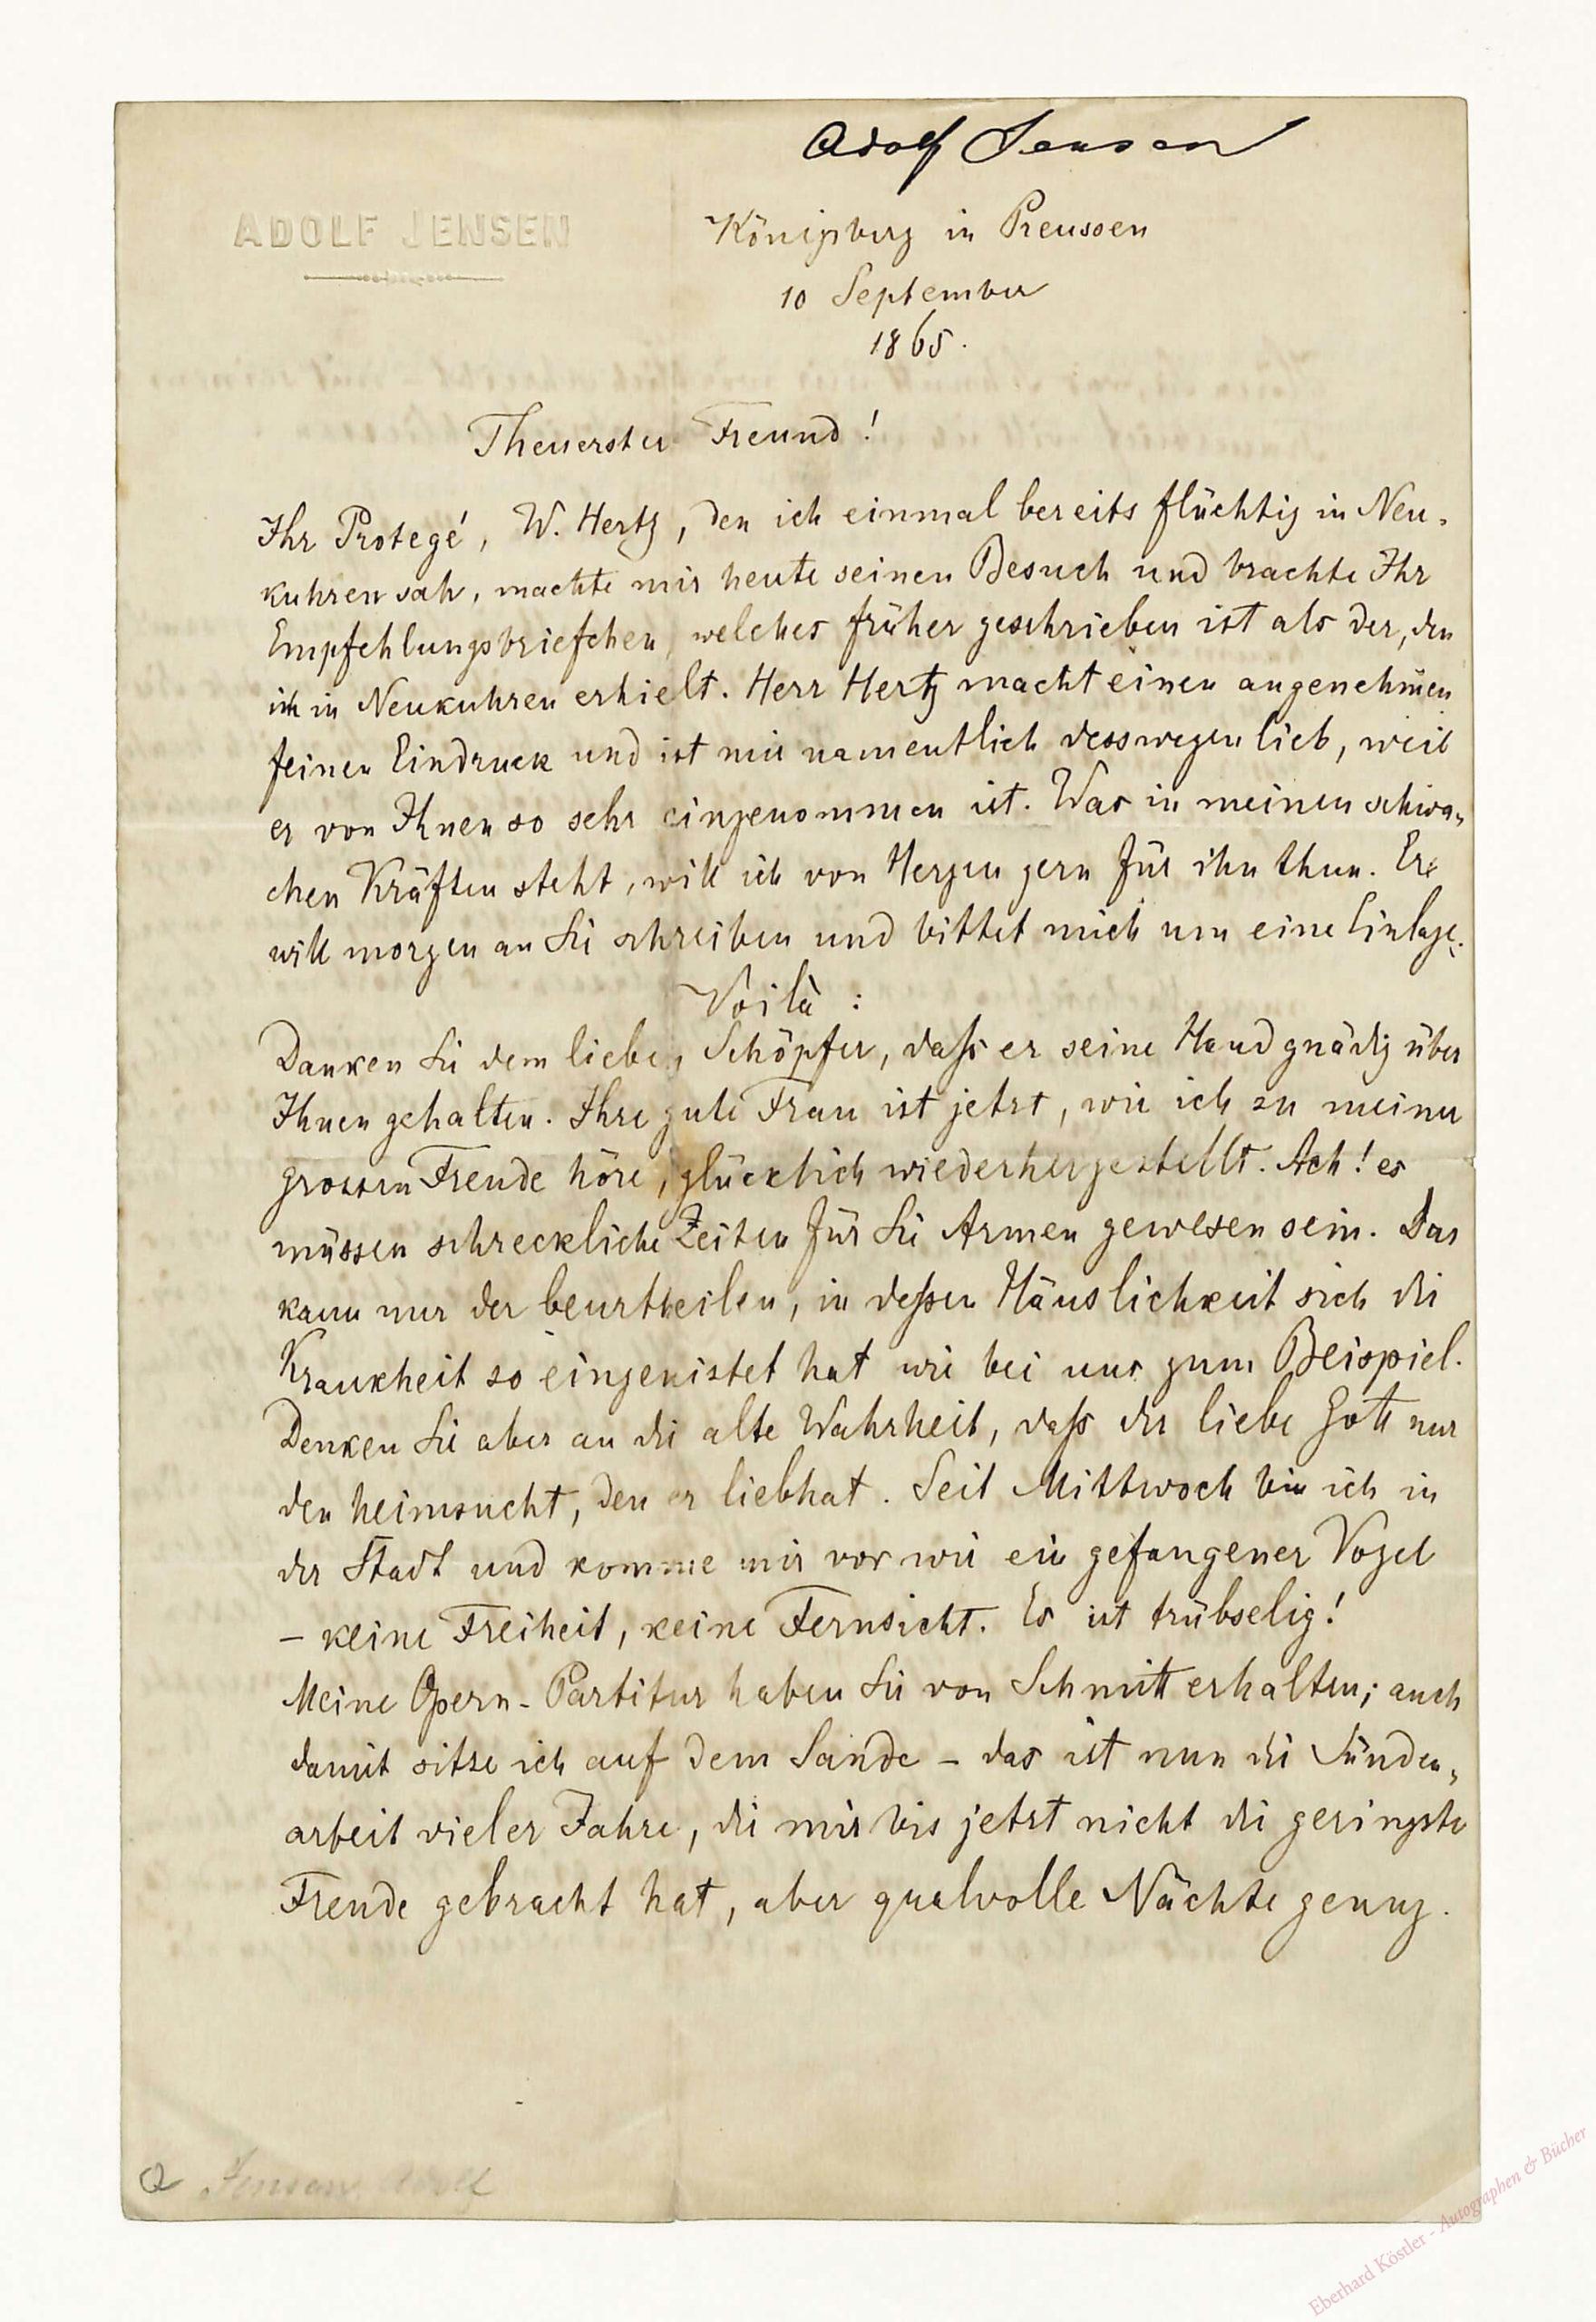 Adolf Jensen
ADOLF JENSEN
Königsberg in Preussen
10 September
1865.
Theuerster Freund!
Ihr Protegé, W. Hertz, den ich einmal bereits flüchtig in Neu-
kuhren sah, machte mir heute seinen Besuch und brachte Ihr
Empfehlungsbriefchen, welches früher geschrieben ist als der, den
ich in Neukuhren erhielt. Herr Hertz macht einen angenehmen
feinen Eindruck und ist mir namentlich desswegen lieb, weil
er von Ihnen so sehr eingenommen ist. Was in meinen schwa-
chen Kräften steht, will ich von Herzen gern für ihn thun. Er
will morgen an Sie schreiben und bittet mich um eine Einlage.
Voilà :
Danken Sie dem lieben Schöpfer, daß er seine Hand gnädig über
Ihnen gehalten. Ihre gute Frau ist jetzt, wie ich zu meiner
grossen Freude höre, glücklich wiederhergestellt. Ach! es
müssen schreckliche Zeiten für Sie Armen gewesen sein. Das
kann nur der beurtheilen, in deßen Häuslichkeit sich die
Krankheit so eingenistet hat wie bei uns zum Beispiel.
Denken Sie aber an die alte Wahrheit, daß der liebe Gott nur
den heimsucht, den er liebhat. Seit Mittwoch bin ich in
der Stadt und komme mir vor wie ein gefangener Vogel
– keine Freiheit, keine Fernsicht. Es ist trübselig!
Meine Opern-Partitur haben Sie von Schmitt erhalten; auch
damit sitze ich auf dem Sande – das ist nun die Sünden-
arbeit vieler Jahre, die mir bis jetzt nicht die geringste
Freude gebracht hat, aber qualvolle Nächte genug.
Jensen, Adolf
Eberhard Köstler - Autographen & Bücher